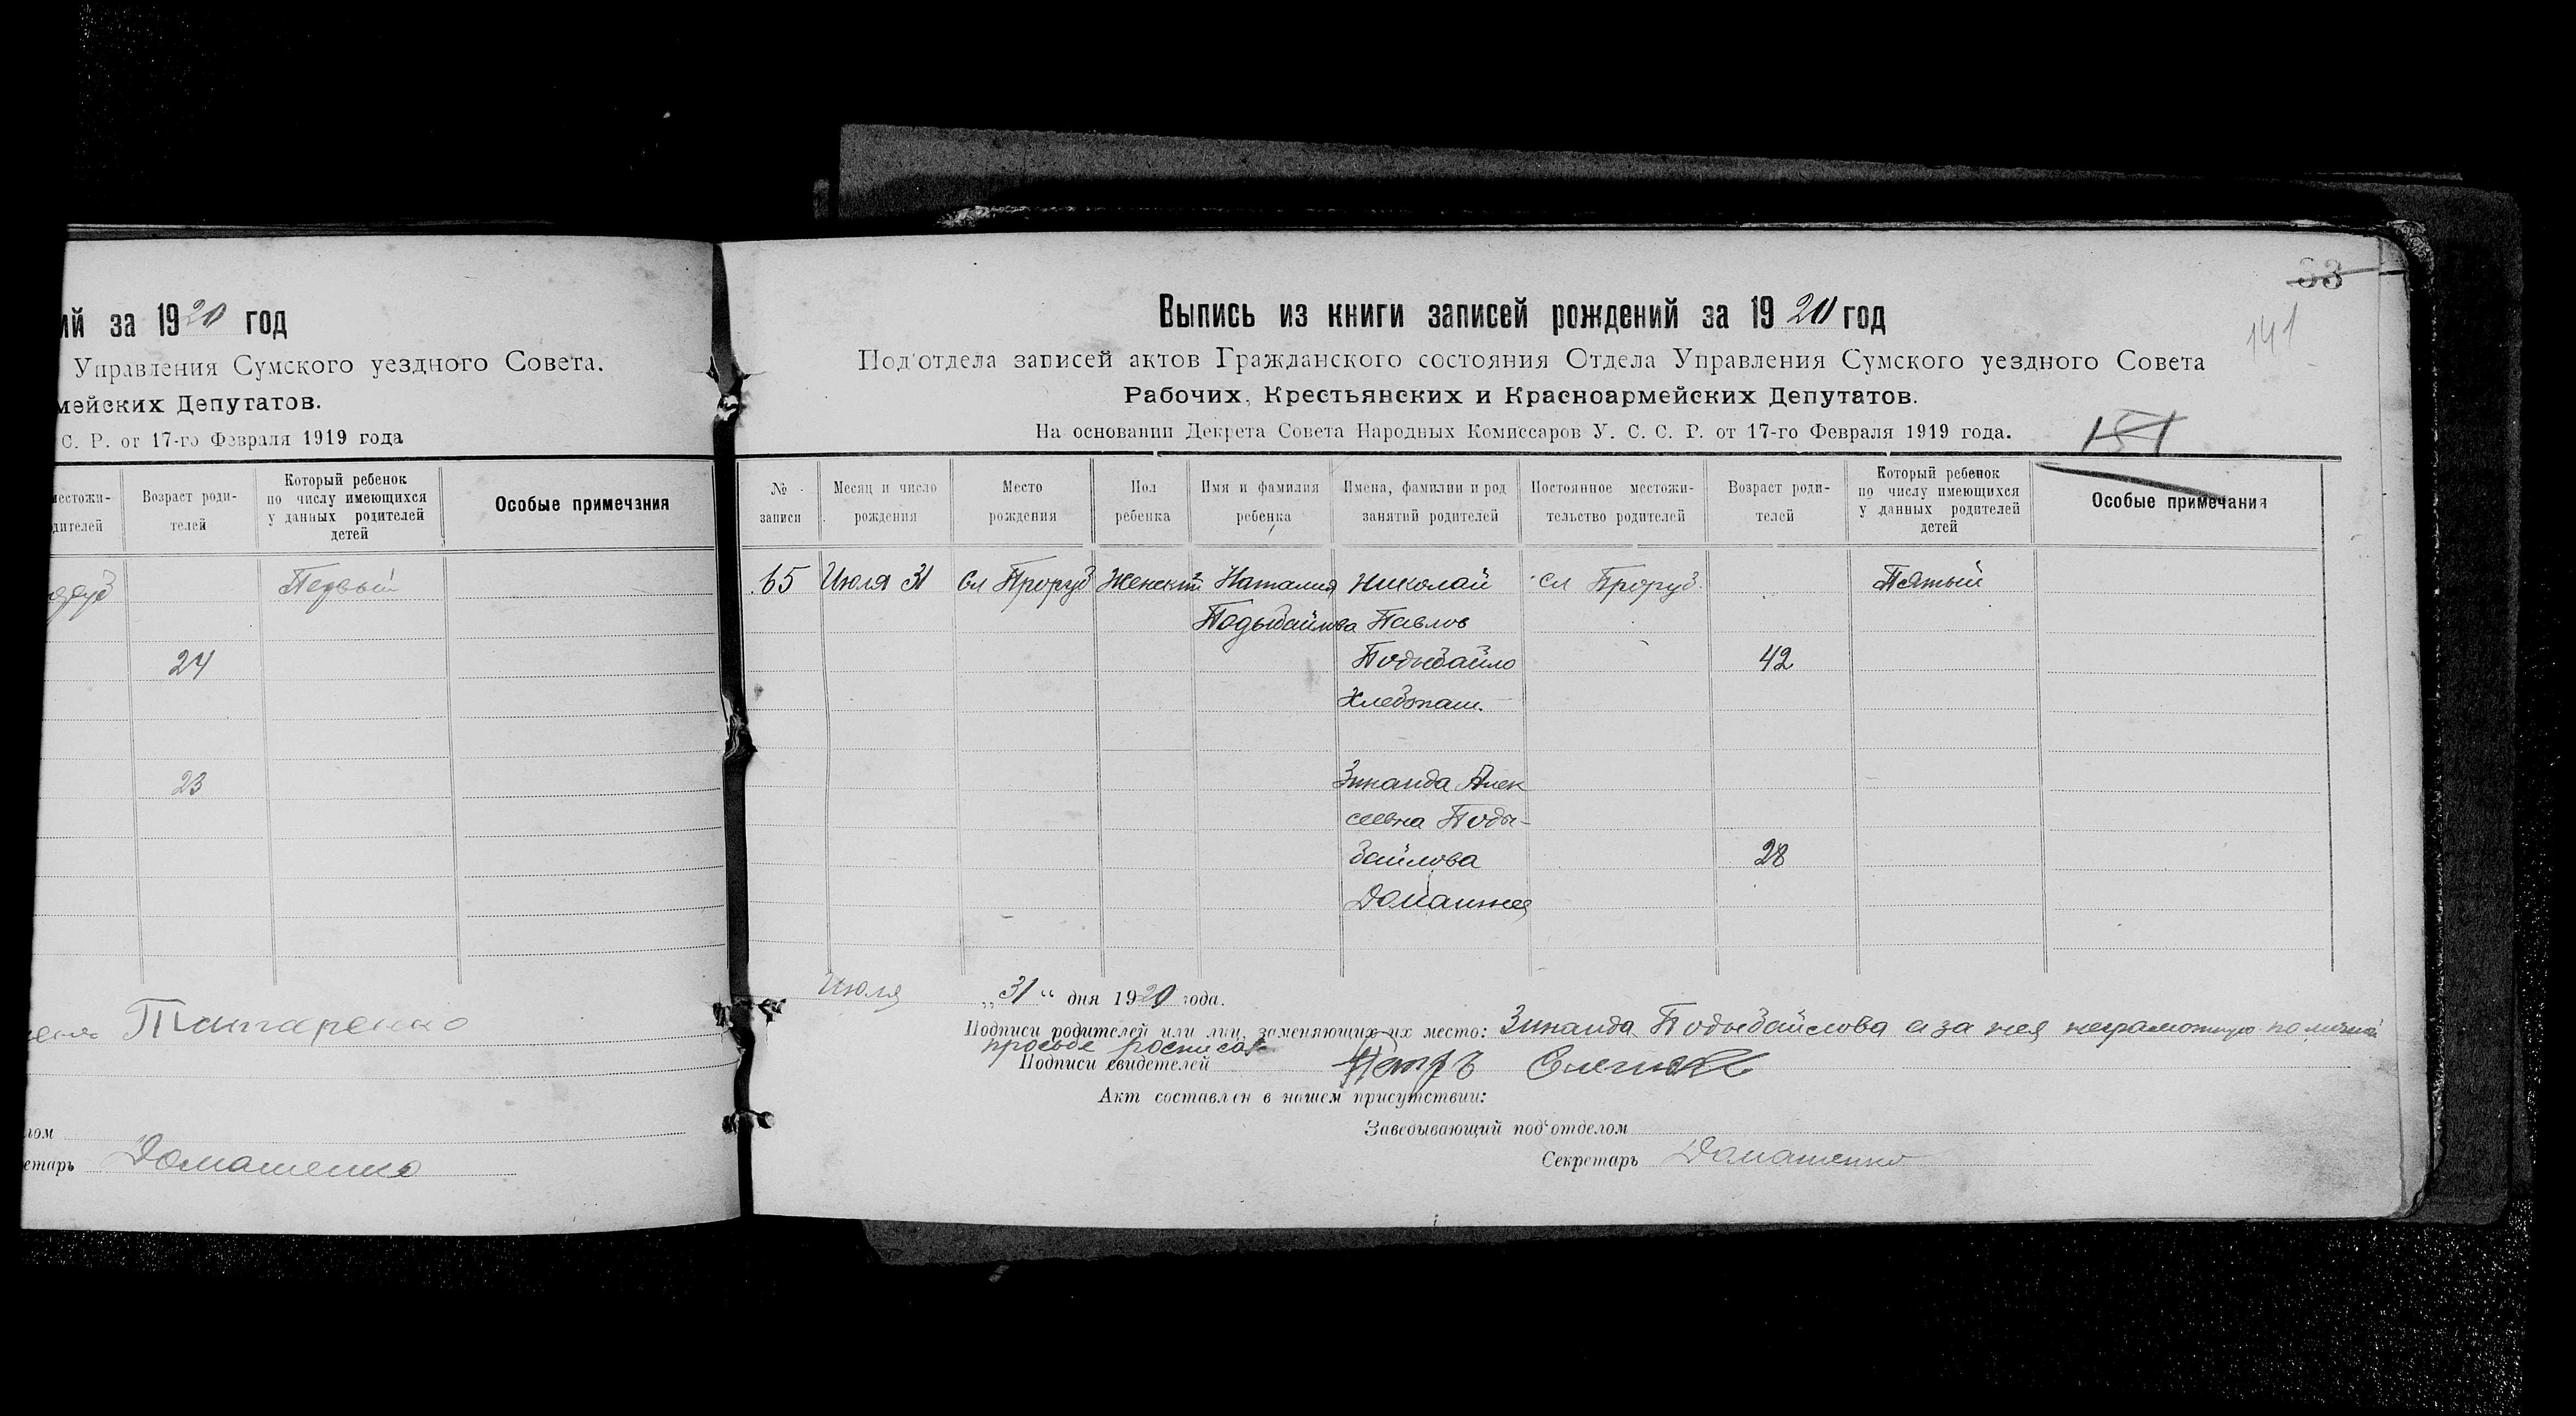 ий за 1920 год
Управления Сумского уездного Совета.
мейских Депутатов.
С. Р. от 17-го Февраля 1919 года
местожи-
дителей
Возраст роди-
телей
Который ребенок
по числу имеющихся
у данных родителей
детей
Особые примечания
Первый
24
23
Домашенко
етарь
83
141
Выпись из книги записей рождений за 1920 год
Под'отдела записей актов Гражданского состояния Отдела Управления Сумского уездного Совета
Рабочих, Крестьянских и Красноармейских Депутатов.
На основании Декрета Совета Народных Комиссаров У. С. С. Р. от 17-го Февраля 1919 года.
№
записи
Месяц и число
рождения
Место
рождения
Пол
ребенка
Имя и фамилия
ребенка
Имена, фамилии и род
занятий родителей
Постоянное местожи-
тельство родителей
Возраст роди-
телей
Который ребенок
по числу имеющихся
у данных родителей
детей
Особые примечания
65 Июля 31 Сл Проруб Женский Наталия Николай сл Проруб. Пятый
Подыбайлова Павлов
Подыбайло 42
Хлебопаш.
Зинаида Алек
сеевна Поды-
байлова 28
Домашняя
Июля „31“ дня 1920 года.
Подписи родителей или лиц, заменяющих их место: Зинаида Подыбайлова а за нея неграмотную по личной
просьбе росписался
Подписи свидетелей Петръ
Акт составлен в нашем присутствии:
Заведывающий под'отделом
Секретарь Домашенко